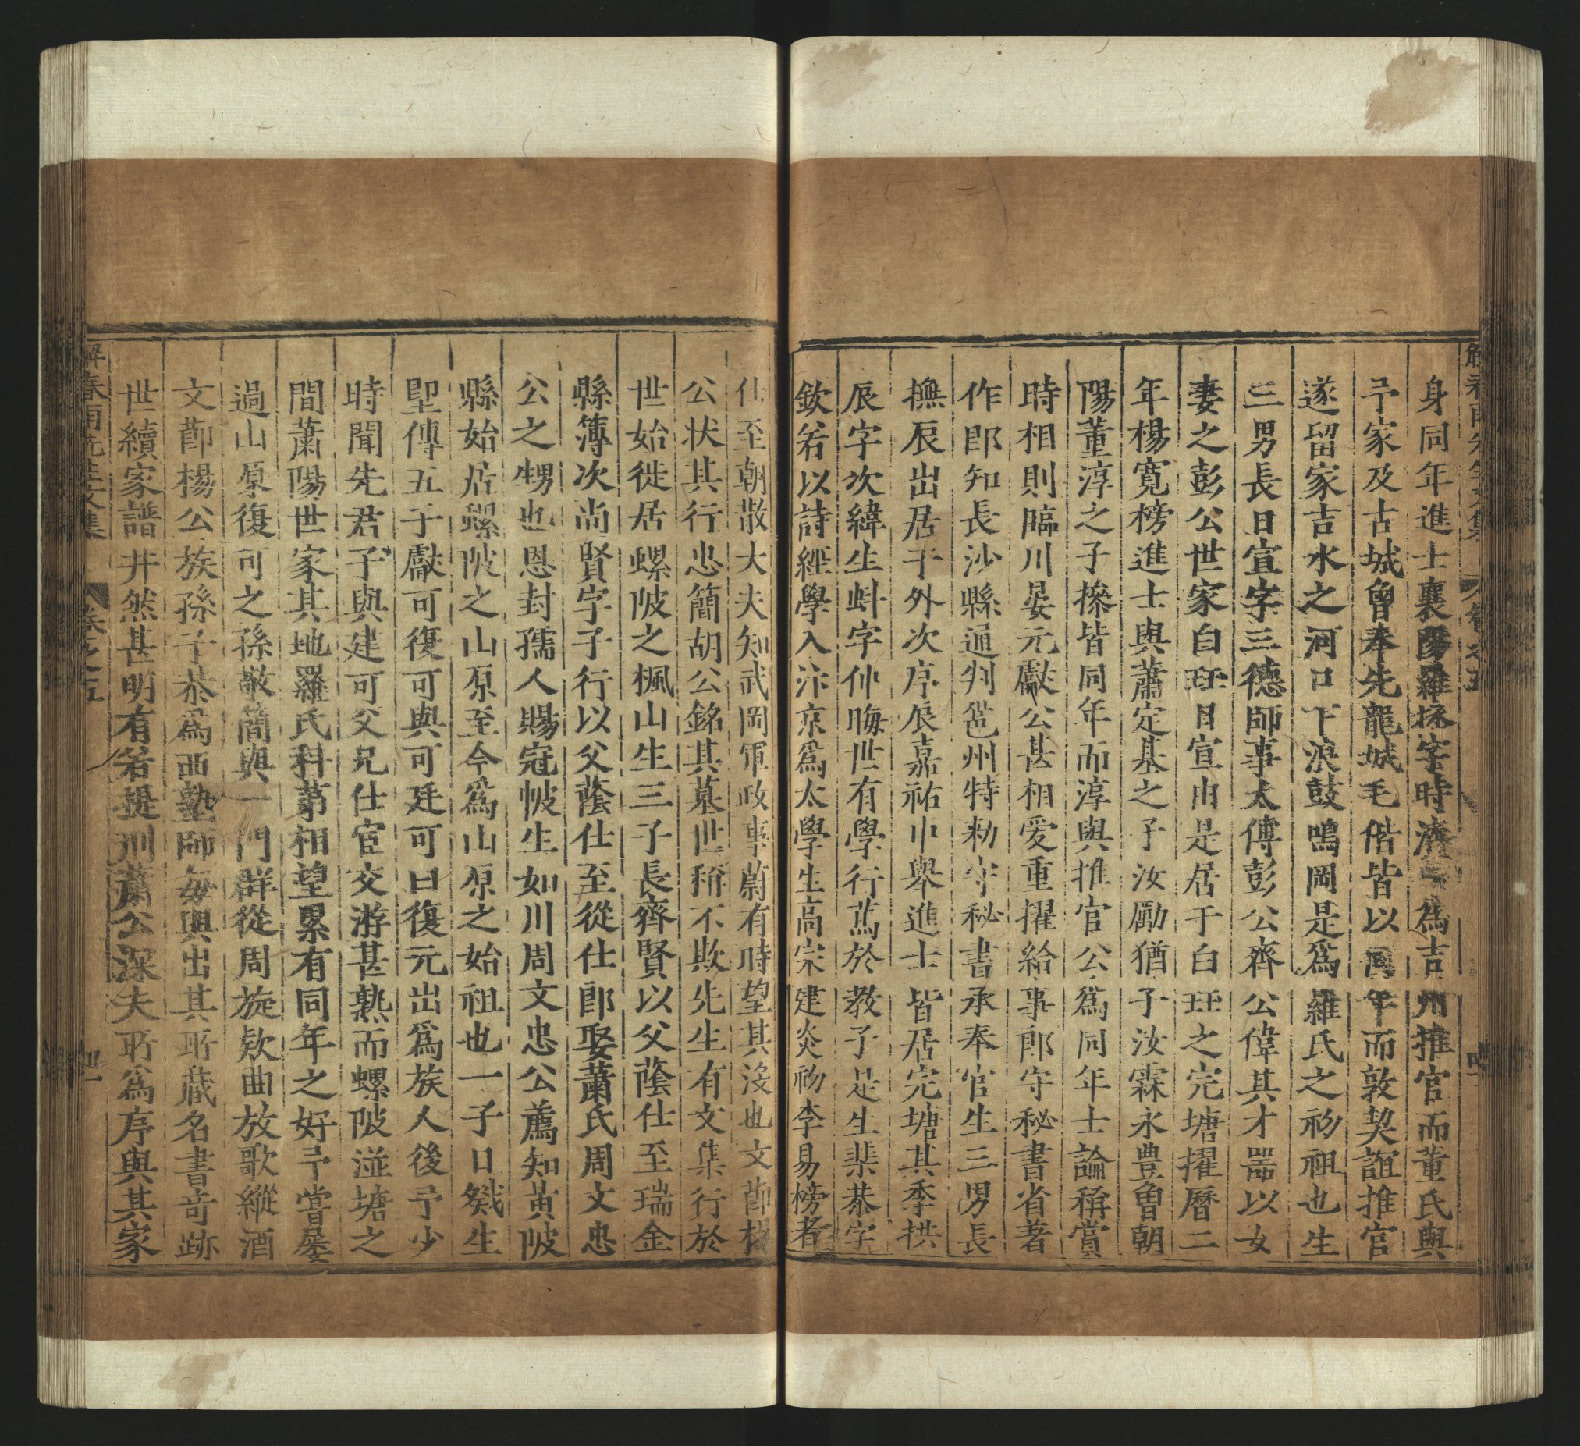 身同年進士襄陽羅抺字時濟爲吉州推官而董氏與
予家及古城曾奉先龍城毛偕皆以同年而敦契誼推官
遂留家吉水之河口下浪鼓鳴岡是爲羅氏之初祖也生
三男長曰宣字三德師事太傅彭公齊公偉其才器以女
妻之彭公世家白玨曰宣由是居于白玨之完塘擢曆二
年楊寬榜進士與蕭定基之子汝勵猶子汝霖永豊曾朝
陽董淳之子摻皆同年而淳與推官公爲同年士論稱賞
時相則臨川晏元獻公甚相愛重擢給事郎守秘書省著
作郎知長沙縣通判邕州特勑守秘書承奉官生三男長
撫辰出居于外次序辰嘉祐中舉進士皆居完塘其季拱
辰字次緯生蚪字仲晦世有學行篤於教子是生棐恭字
欽若以詩經學入汴京爲太學生高宋建炎初李易榜者
仕至朝散大夫知武岡軍政事蔚有時望其沒也文節楊
公状其行忠簡胡公銘其墓世稱不欺先生有文集行於
世始徙居螺陂之楓山生三子長齊賢以父蔭仕至瑞金
縣簿次尚賢字子行以父蔭仕至從仕郎娶蕭氏周文忠
公之甥也恩封孺人賜冠帔生如川周文忠公薦知黃陂
縣始居螺陂之山原至今爲山原之始祖也一子曰燚生
聖傳五子獻可復可與可廷可曰復元出爲族人後予少
時聞先君子與建可父兄仕宦交游甚熟而螺陂湴塘之
間蕭陽世家其地羅氏科苐相望累有同年之好予嘗屡
過山原復可之孫敬簡與一門群從周旋欵曲放歌縱酒
文節楊公族孫子恭爲西塾師每與出其所藏名書竒跡
世續家譜井然甚明有若提刑蕭公深夫所爲序與其家
解春雨先生文集　卷之五